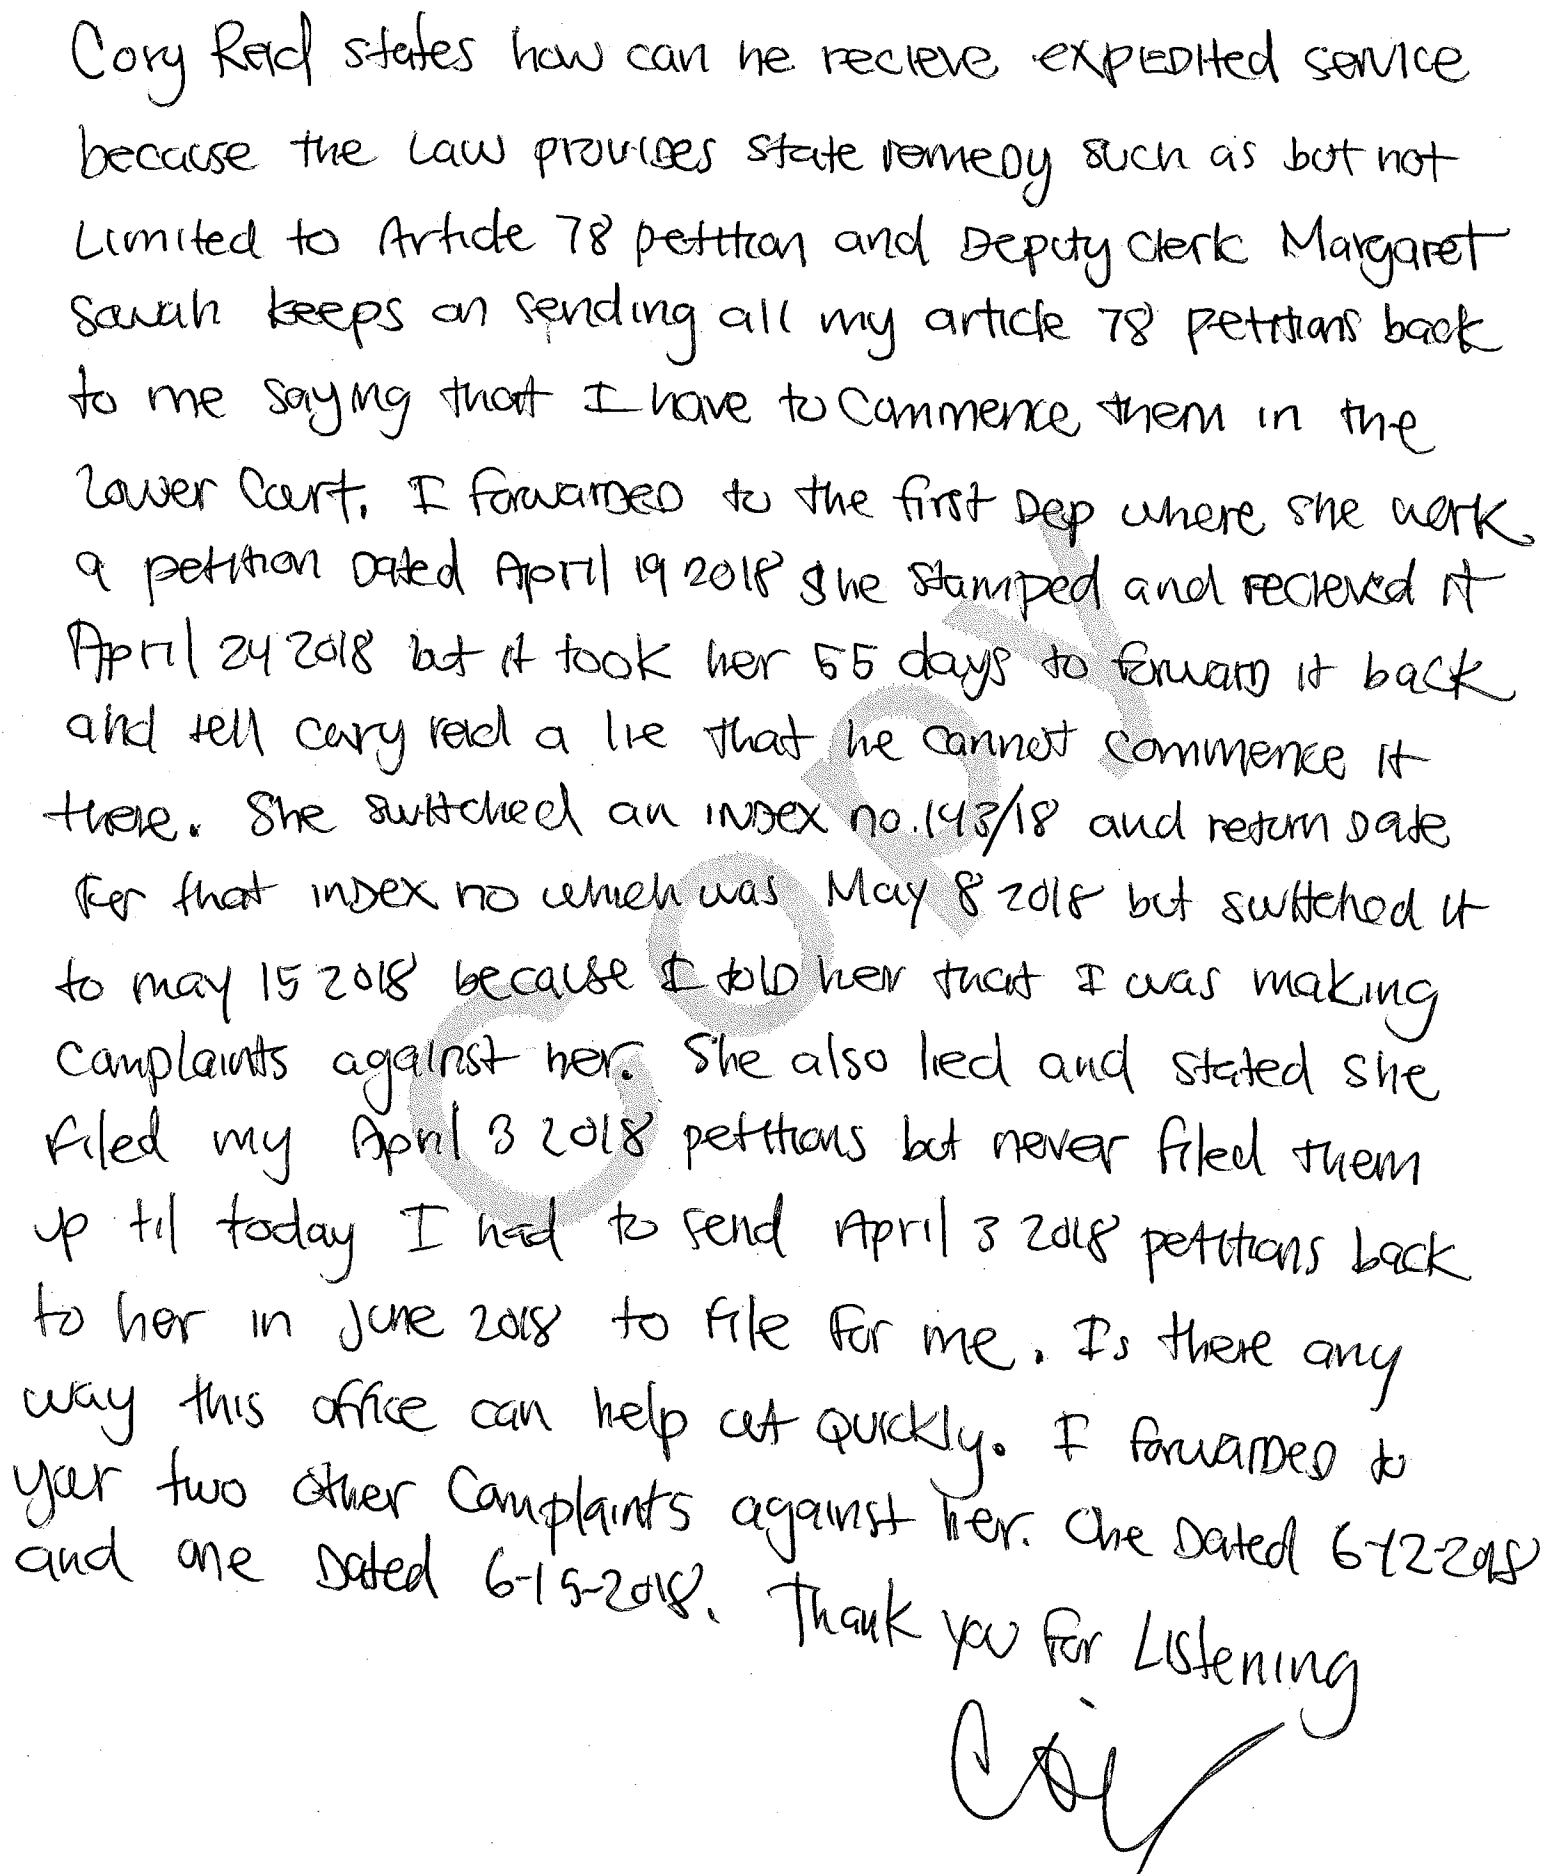 Cory Reid states how can he recieve expedited service
because the Law provides state remedy such as but not
Limited to Article 78 petition and Deputy Clerk Margaret
Sowah keeps on sending all my article 78 petitions back
to me saying that I have to commence them in the
Lower Court. I forwarded to the first Dep where she work
a petition Dated April 19 2018 She Stamped and recieved it
April 24 2018 but it took her 55 days to forward it back
and tell cory reid a lie that he cannot commence it
there. She switched an index no. 143/18 and return Date
For that index no which was May 8 2018 but switched it
to may 15 2018 because I told her that I was making
Complaints against her. She also lied and stated she
Filed my April 3 2018 petitions but never filed them
up til today I had to send April 3 2018 petitions back
to her in June 2018 to file for me. Is there any
way this office can help out quickly. I forwarded to
your two other Complaints against her. One Dated 6-12-2018
and one Dated 6-15-2018. Thank you for Listening
COPY